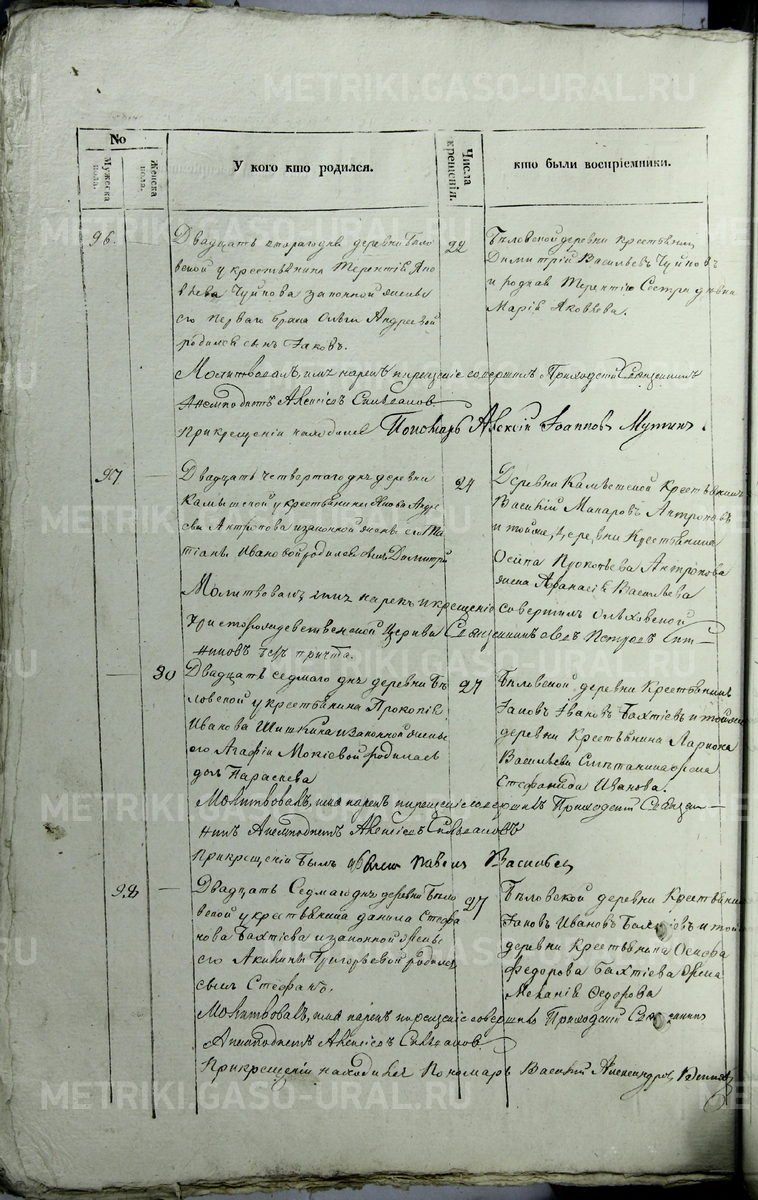 METRIKI.GASO-URAL.RU
No
Мужеска пола.
Женска пола.
У кого кто родился.
Числа крещенія.
кто были воспріемники.
96.
Двадцать втораго дня деревни Бѣло
вской у крестьянина Терентія Яко
влева Чуйкова законной жены
его перваго брака Ольги Андреевой
родился сынъ Іаковъ.
22
Бѣловской деревни крестьянин
Димитрій Васильевъ Чуйковъ
и родная Терентію сестра дѣвка
Марія Яковлева.
Молитвовалъ, имя нарекъ и крещеніе совершилъ Приходскій Священникъ
Анемподистъ Алексіевъ
При крещеніи находился Пономарь Алексій Іоанновъ Мутинъ.
97
Двадцать четвертаго дня деревни
Камышской у крестьянина Якова Андре
ева Антропова и законной жены его Та
тіаны Ивановой родился сынъ Димитрій
24
Деревни Камышской Крестьянинъ
Василій Макаровъ Антроповъ
и тойже деревни Крестьянина
Осипа Прокопьева Антропова
жена Афанасія Васильева
Молитвовалъ, имя нарекъ и крещеніе совершилъ
Христорождественской Церкви Священник Петровъ
безъ причта.
30
Двадцать седмаго дня деревни Бѣ
ловской у крестьянина Прокопія
Иванова Шишкина и законной жены
его Агафіи Мокіевой родилась
дочь Параскева
27
Бѣловской деревни Крестьянин
Іаковъ Ивановъ Бахтіевъ и тойже
деревни Крестьянина Ларіона
Васильева жена
Стефанида Иванова.
Молитвовалъ, имя нарекъ и крещеніе совершилъ Приходскій Священ
никъ Анемподистъ Алексіевъ
При крещеніи былъ Павелъ Васильев
98
Двадцать Седмаго дня деревни Бѣло
вской у крестьянина Данила Стефа
нова Бахтіева и законной жены
его Акилины Григорьевой родился
сынъ Стефанъ.
27
Бѣловской деревни Крестьянин
Іаковъ Ивановъ Бахтіевъ и тойже
деревни Крестьянина Осифа
Федорова Бахтіева жена
Меланія Федорова
Молитвовалъ, имя нарекъ и крещеніе совершилъ Приходскій Священникъ
Анемподистъ Алексіевъ
При крещеніи находился Пономарь Василій Александров